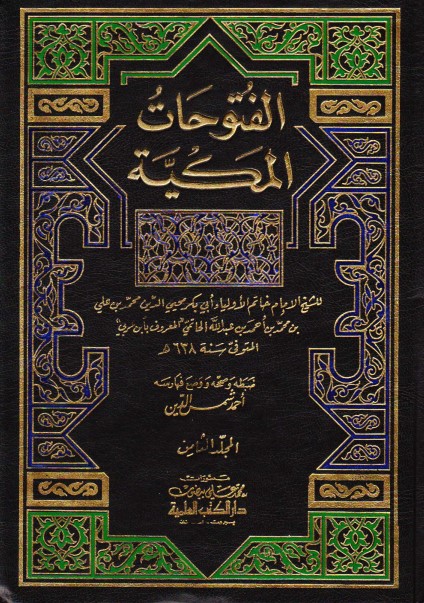 الفتوحات
المكية
للشيخ الإمام خاتم الأولياء أبي بكر محيي الدين محمد بن علي
بن محمد بن أحمد بن عبد الله الحاتمي المعروف بابن عربي
المتوفى سنة ٦٣٨ هـ
ضبطه وصححه ووضع فهارسه
أحمد شمس الدين
المجلد الثامن
منشورات
محمد علي بيضون
دار الكتب العلمية
بيروت - لبنان